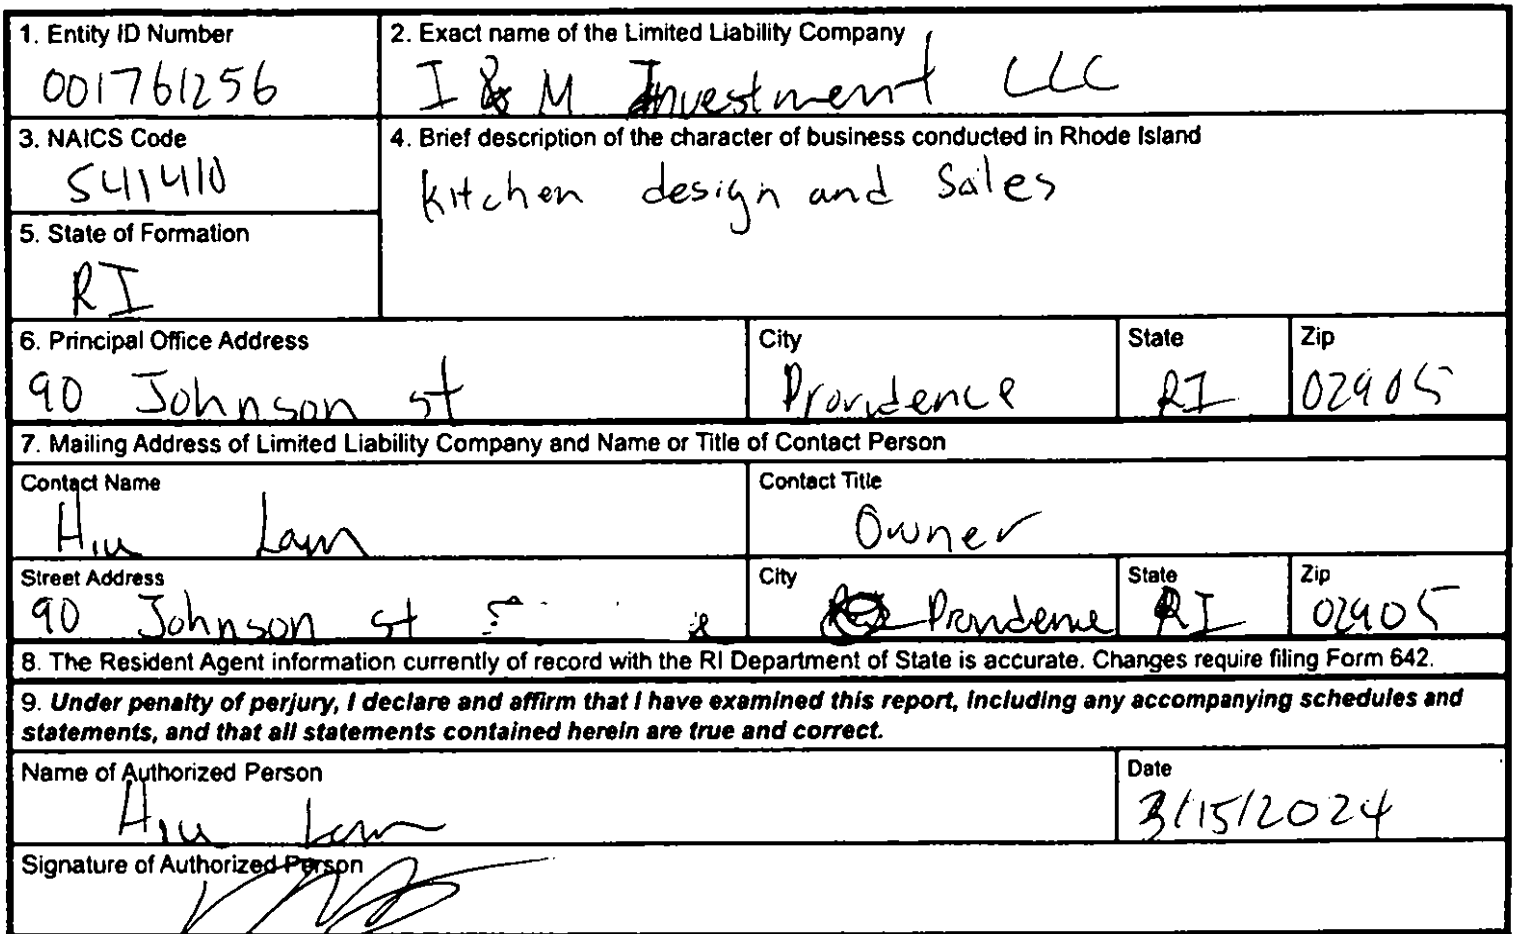 1. Entity ID Number
001761256
2. Exact name of the Limited Liability Company
I & M Investment LLC
3. NAICS Code
541410
4. Brief description of the character of business conducted in Rhode Island
kitchen design and Sales
5. State of Formation
RI
6. Principal Office Address
90 Johnson st
City
Providence
State
RI
Zip
02905
7. Mailing Address of Limited Liability Company and Name or Title of Contact Person
Contact Name
Hiu Lam
Contact Title
Owner
Street Address
90 Johnson st
City
Providence
State
RI
Zip
02905
8. The Resident Agent information currently of record with the RI Department of State is accurate. Changes require filing Form 642.
9. Under penalty of perjury, I declare and affirm that I have examined this report, including any accompanying schedules and
statements, and that all statements contained herein are true and correct.
Name of Authorized Person
Hiu Lam
Date
3/15/2024
Signature of Authorized Person